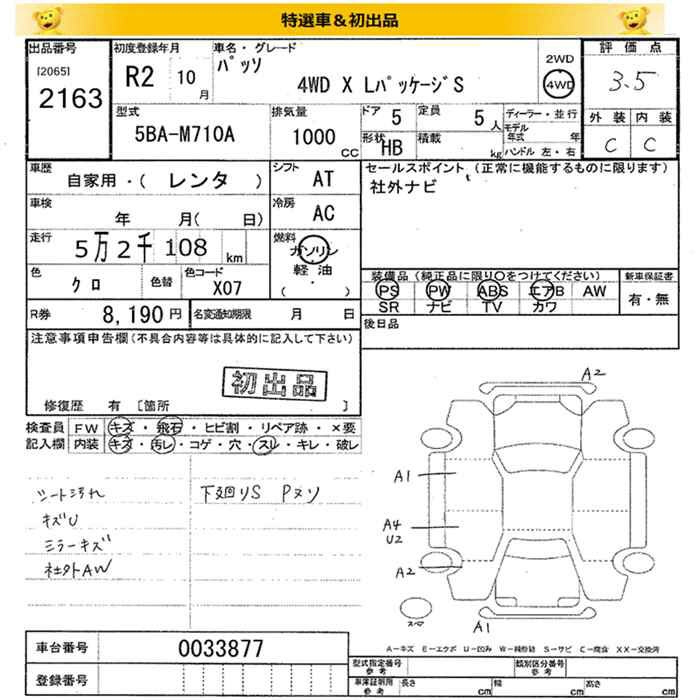 特選車＆初出品
出品番号
[2065]
2163
初度登録年月
R2 10月
車名・グレード
パッソ
4WD X LパッケージS
2WD
4WD
評価点
3.5
外装 内装
C C
型式
5BA-M710A
排気量
1000 CC
ドア 5
定員 5人
形状 HB
積載 kg
ディーラー・並行
モデル年式 年
ハンドル 左・右
車歴
自家用・( レンタ )
シフト AT
車検
年 月( 日)
冷房 AC
走行
5万2千108 km
燃料
ガソリン・軽油
( )
色 クロ
色替
色コード X07
R券 8,190円
名変通知期限 月 日
セールスポイント（正常に機能するものに限ります）
社外ナビ
装備品（純正品に限り○をつけてください）
PS PW ABS エアB AW
SR ナビ TV カワ
新車保証書
有・無
後日品
注意事項申告欄（不具合内容等は具体的に記入して下さい）
初出品
修復歴 有 [箇所 ]
検査員記入欄
FW キズ・飛石・ヒビ割・リペア跡・×要
内装 キズ・汚レ・コゲ・穴・スレ・キレ・破レ
シート汚れ
キズU
ミラーキズ
社外AW
下廻りS Pヌソ
A2
A1
A4
U2
A2
A1
スペ
A-キズ E-エクボ U-凹み W-補修跡 S-サビ C-腐食 XX-交換済
車台番号 0033877
登録番号
型式指定番号 参考
類別区分番号 参考
車庫証明用 参考
長さ cm 幅 cm 高さ cm